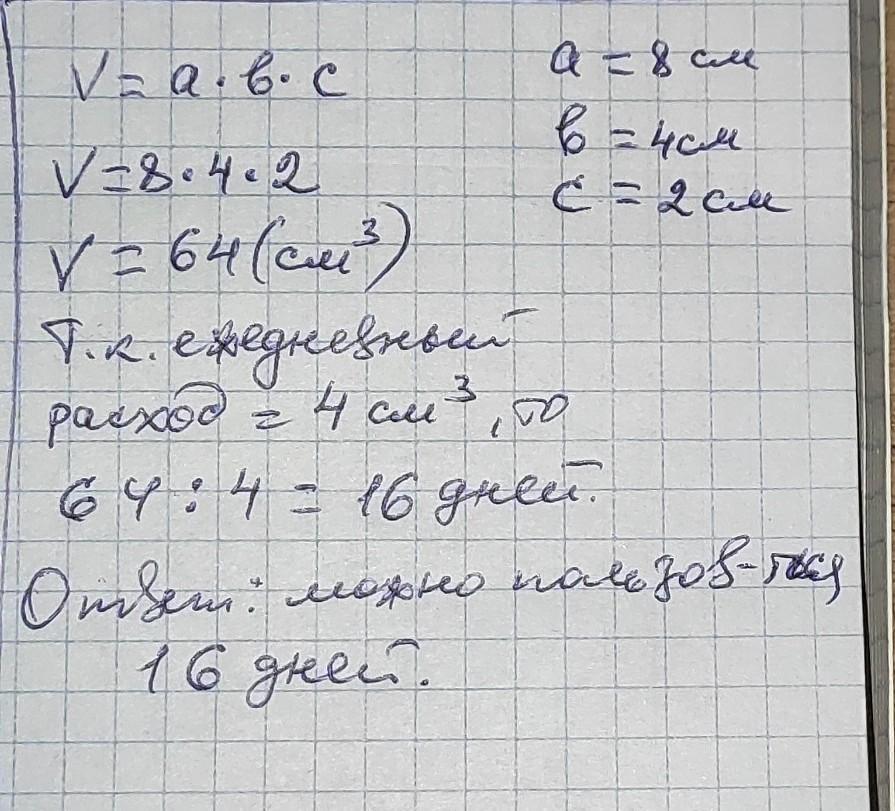 V = а · в · с
а = 8 см
V = 8 · 4 · 2
в = 4 см
с = 2 см
V = 64 (см³)
Т.к. ежедневный
расход = 4 см³, то
64 : 4 = 16 дней.
Ответ: можно пользов-ться
16 дней.